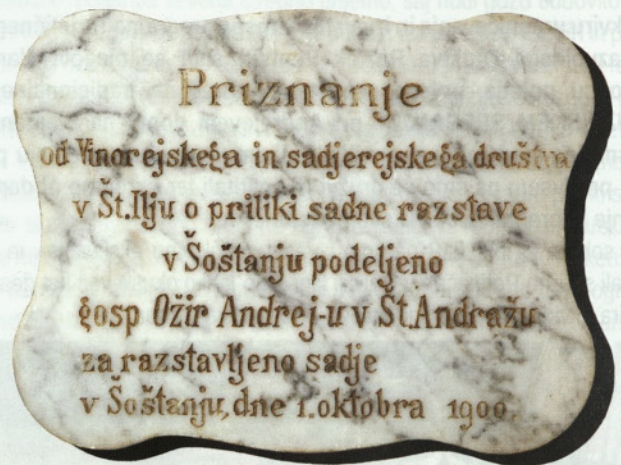 Priznanje
od Vinorejskega in sadjerejskega društva
v Št.Ilju o priliki sadne razstave
v Šoštanju podeljeno
gosp Ožir Andrej-u v Št.Andražu
za razstavljeno sadje
v Šoštanju, dne 1. oktobra 1900.